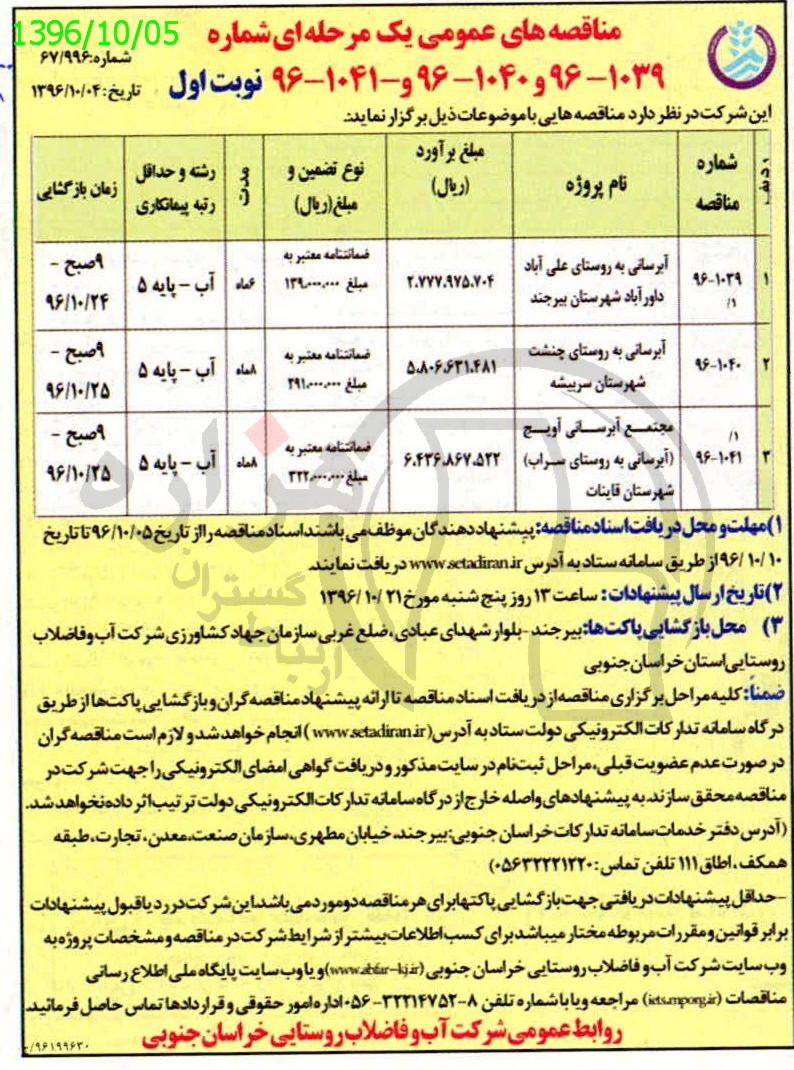 1396/10/05
مناقصه های عمومی یک مرحله ای شماره
شماره: ۶۷/۹۹۶
۱۰۳۹-۹۶ و ۱۰۴۰-۹۶ و ۱۰۴۱-۹۶ نوبت اول
تاریخ: ۱۳۹۶/۱۰/۰۴
این شرکت در نظر دارد مناقصه هایی با موضوعات ذیل برگزار نماید:
ردیف | شماره مناقصه | نام پروژه | مبلغ برآورد (ریال) | نوع تضمین و مبلغ(ریال) | مدت | رشته و حداقل رتبه پیمانکاری | زمان بازگشایی
۱ | ۹۶-۱۰۳۹ /۱ | آبرسانی به روستای علی آباد داورآباد شهرستان بیرجند | ۲.۷۷۷.۹۷۵.۷۰۴ | ضمانتنامه معتبر به مبلغ ۱۳۹.۰۰۰.۰۰۰ | ۶ماه | آب - پایه ۵ | ۹صبح - ۹۶/۱۰/۲۴
۲ | ۹۶-۱۰۴۰ | آبرسانی به روستای چنشت شهرستان سربیشه | ۵.۸۰۶.۶۳۱.۴۸۱ | ضمانتنامه معتبر به مبلغ ۲۹۱.۰۰۰.۰۰۰ | ۸ماه | آب - پایه ۵ | ۹صبح - ۹۶/۱۰/۲۵
۳ | /۱ ۹۶-۱۰۴۱ | مجتمع آبرسانی آویج (آبرسانی به روستای سراب) شهرستان قاینات | ۶.۴۳۶.۸۶۷.۵۲۲ | ضمانتنامه معتبر به مبلغ ۳۲۲.۰۰۰.۰۰۰ | ۸ماه | آب - پایه ۵ | ۹صبح - ۹۶/۱۰/۲۵
۱)مهلت و محل دریافت اسناد مناقصه: پیشنهاد دهندگان موظف می باشند اسناد مناقصه را از تاریخ ۹۶/۱۰/۰۵ تا تاریخ
۹۶/۱۰/۱۰ از طریق سامانه ستاد به آدرس www.setadiran.ir دریافت نمایند.
۲)تاریخ ارسال پیشنهادات: ساعت ۱۳ روز پنج شنبه مورخ ۱۳۹۶/۱۰/۲۱
۳) محل بازگشایی پاکت ها: بیرجند - بلوار شهدای عبادی، ضلع غربی سازمان جهاد کشاورزی شرکت آب و فاضلاب
روستایی استان خراسان جنوبی
ضمناً: کلیه مراحل برگزاری مناقصه از دریافت اسناد مناقصه تا ارائه پیشنهاد مناقصه گران و بازگشایی پاکت ها از طریق
درگاه سامانه تدارکات الکترونیکی دولت ستاد به آدرس (www.setadiran.ir) انجام خواهد شد و لازم است مناقصه گران
در صورت عدم عضویت قبلی، مراحل ثبت نام در سایت مذکور و دریافت گواهی امضای الکترونیکی را جهت شرکت در
مناقصه محقق سازند. به پیشنهادهای واصله خارج از درگاه سامانه تدارکات الکترونیکی دولت ترتیب اثر داده نخواهد شد.
(آدرس دفتر خدمات سامانه تدارکات خراسان جنوبی: بیرجند، خیابان مطهری، سازمان صنعت، معدن، تجارت، طبقه
همکف، اطاق ۱۱۱ تلفن تماس: ۰۵۶۳۲۲۲۱۲۲۰)
-حداقل پیشنهادات دریافتی جهت بازگشایی پاکتها برای هر مناقصه دو مورد می باشد. این شرکت در رد یا قبول پیشنهادات
برابر قوانین و مقررات مربوطه مختار میباشد برای کسب اطلاعات بیشتر از شرایط شرکت در مناقصه و مشخصات پروژه به
وب سایت شرکت آب و فاضلاب روستایی خراسان جنوبی (www.abfar-kj.ir) و یا وب سایت پایگاه ملی اطلاع رسانی
مناقصات (iets.mporg.ir) مراجعه و یا با شماره تلفن ۸-۳۲۲۱۴۷۵۲-۰۵۶ اداره امور حقوقی و قراردادها تماس حاصل فرمائید.
روابط عمومی شرکت آب و فاضلاب روستایی خراسان جنوبی
۹۶۱۹۹۶۳۰/
هزاره
گستران
ارتباط